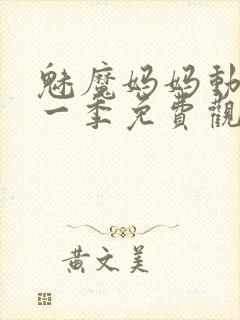 魅魔妈妈動
一季免費觀
黃文美